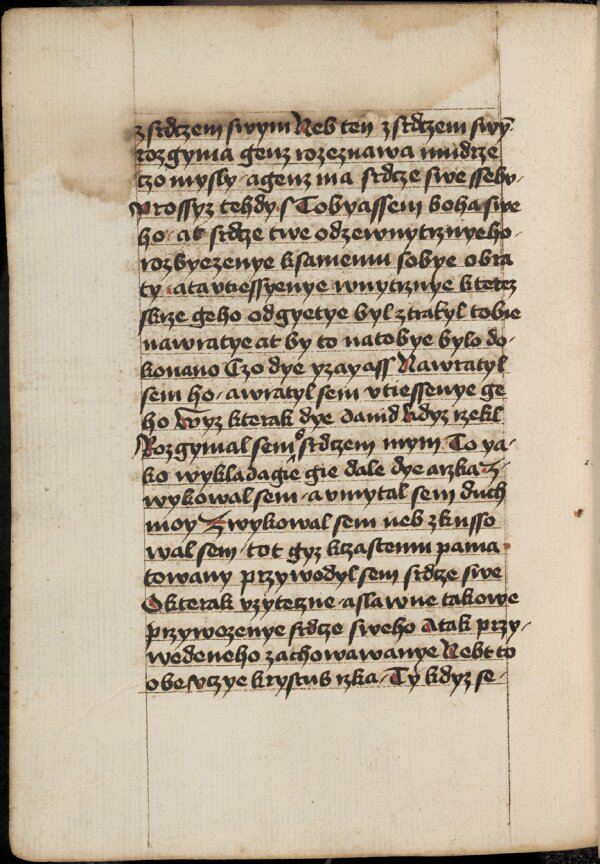 z srdczem swym Neb ten z srdczem swȳ
rozgyma genz rozeznawa mudrze
czo mysly · agenz ma srdcze swe ssebu ·
Prossyz tehdy s Tobyassem boha swe
ho · at srdcze twe odzewnytrznyeho ·
rozbyezenye ksamemu sobye obra
ty · ata vtiessyenye wnytrznye kterez
skrze geho odgyetye byl ztratyl tobie
nawratye at by to natobye bylo do ·
konano Czo dye yzayass Nawratyl
sem ho · awratyl sem vtiessenye ge
ho Wyz kterak dye dauid kdyz rzekl
Rozgymal sem srdczem mym To ya ·
ko wykladagie gie dale dye arzka Z ·
wykowal sem · a vmytal sem duch
moy Zwykowal sem neb zkusso
wal sem · tot gyz kczastemu pama
towany przywodyl sem srdcze swe
O kterak vzyteczne · aslawne takowe
przywozenye srdcze sweho Atak przy ·
wedeneho zachowawanye Nebt to
obe vczye krystus rzka · Ty kdyz se ·